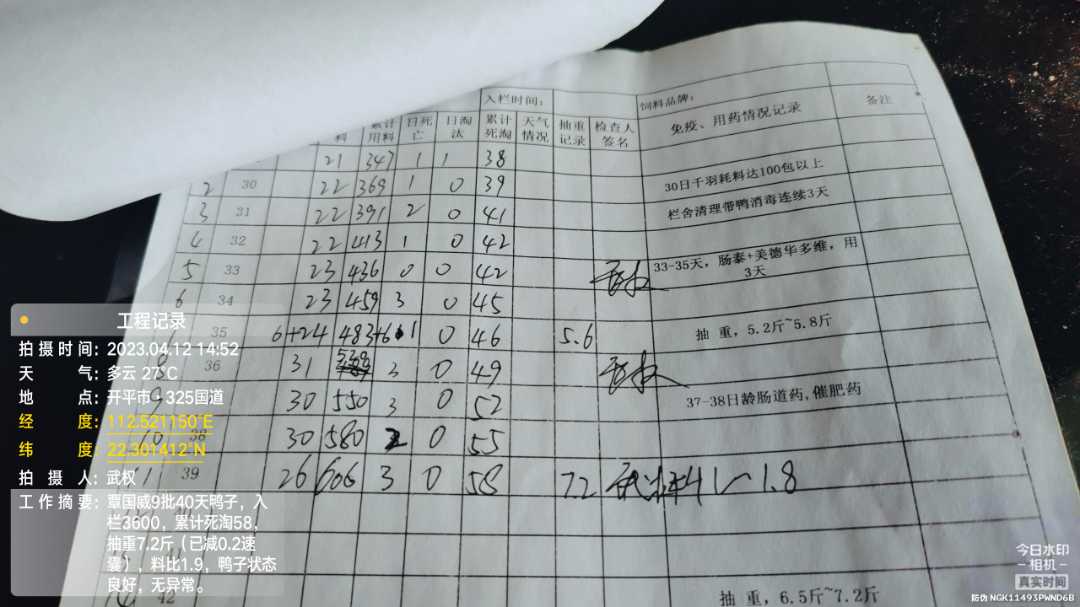 入栏时间： 饲料品牌：
料 累计用料 日死亡 日淘汰 累计死淘 天气情况 抽重记录 检查人签名 免疫、用药情况记录 备注
21 347 1 1 38
2 30 22 369 1 0 39 30日千羽耗料达100包以上
3 31 22 391 2 0 41 栏舍清理带鸭消毒连续3天
4 32 22 413 1 0 42
5 33 23 436 0 0 42 33-35天，肠泰+美德华多维，用3天
6 34 23 459 3 0 45
35 6+24 483+6 1 0 46 5.6 抽 重，5.2斤~5.8斤
36 31 3 0 49
30 550 3 0 52 37-38日龄肠道药,催肥药
10 38 30 580 2 0 55
1 39 26 606 3 0 58 7.2 41~1.8
42 抽 重，6.5斤~7.2斤
工程记录
拍摄时间：2023.04.12 14:52
天 气：多云 27℃
地 点：开平市·325国道
经 度：112.521150°E
纬 度：22.301412°N
拍 摄 人：武权
工作摘要：覃国威9批40天鸭子，入
栏3600，累计死淘58，
抽重7.2斤（已减0.2速
囊），料比1.9，鸭子状态
良好，无异常。
今日水印
相机
真实时间
防伪 NGK11493PWND6B